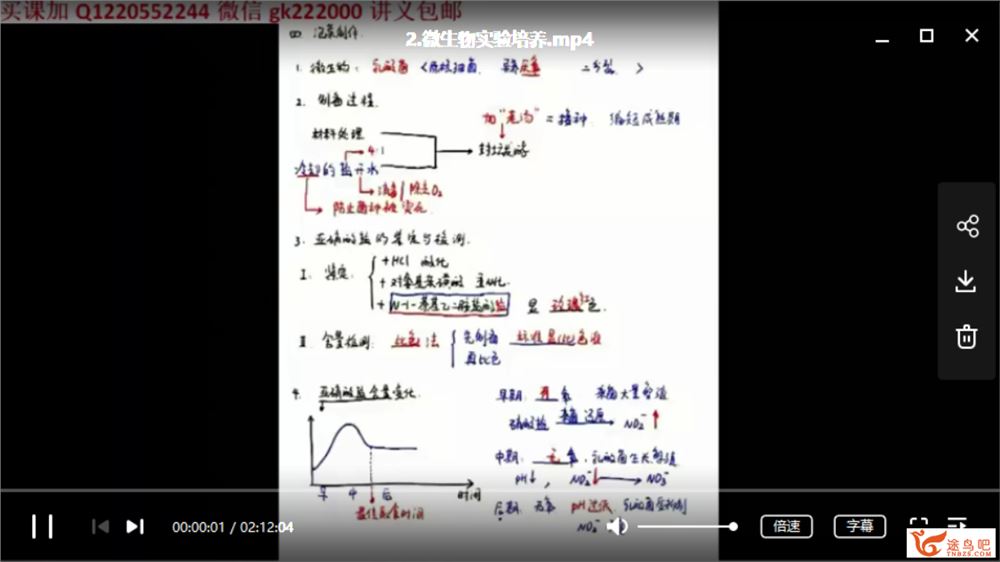 实课加 Q1220552244 微信 gk222000 讲义包邮
2.微生物实验培养.mp4
四 泡菜制作.
1. 微生物: 乳酸菌 <原核细菌. 异养厌氧 二分裂. >
2. 制备过程.
加“老汤” = 接种. 缩短成熟期
材料处理
4:1
封坛发酵
冷却的盐开水
消毒/除去O₂
防止菌种被烫死.
3. 亚硝酸盐的鉴定与检测.
I. 鉴定:
+HCl 酸化
+对氨基苯磺酸 重氮化.
+N-1-萘基乙二胺盐酸盐 显 玫瑰红色.
II. 含量检测: 比色法
先制备 标准显色液
再比色
4. 亚硝酸盐含量变化.
早期: 有氧 杂菌大量繁殖
硝酸盐 杂菌 还原 NO₂⁻ ↑
中期: 无氧, 乳酸菌生长繁殖
pH↓, NO₂⁻↓ NO₃⁻
后期: 无氧 pH过低 乳酸菌受抑制
NO₂⁻
早 中 后 时间
最佳食用时间
00:00:01 / 02:12:04
倍速
字幕
途鸟吧
TNBZS.COM